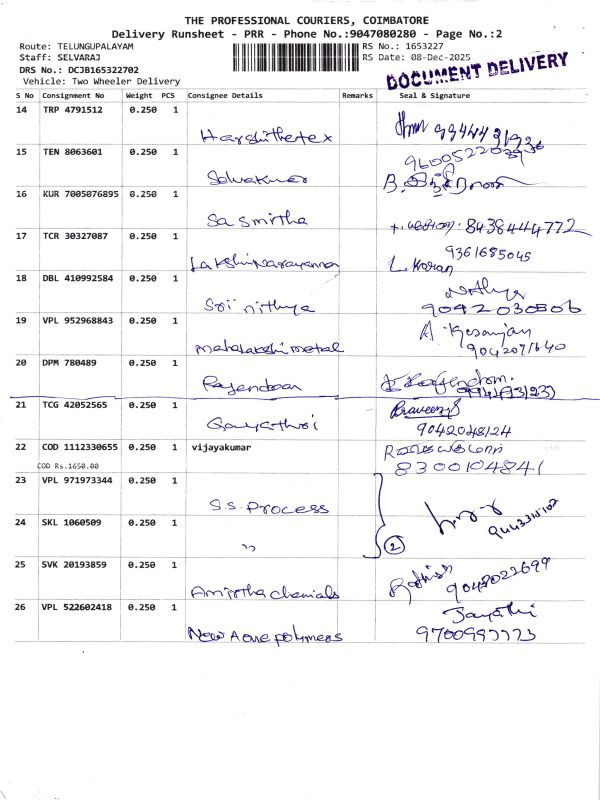 THE PROFESSIONAL COURIERS, COIMBATORE
Delivery Runsheet - PRR - Phone No.:9047080280 - Page No.:2
Route: TELUNGUPALAYAM RS No.: 1653227
Staff: SELVARAJ RS Date: 08-Dec-2025
DRS No.: DCJB165322702
Vehicle: Two Wheeler Delivery
DOCUMENT DELIVERY
S No Consignment No Weight PCS Consignee Details Remarks Seal & Signature
14 TRP 4791512 0.250 1
Harshithetex
15 TEN 8063601 0.250 1
Selvakumar
16 KUR 7005076895 0.250 1
Sasmirtha 8438444772
17 TCR 30327087 0.250 1
9361685045
Lakshi Narayanna
18 DBL 410992584 0.250 1
Sri nithya
9042030806
19 VPL 952968843 0.250 1
mahalakshi metal
9042071640
20 DPM 780489 0.250 1
Rajendran
21 TCG 42052565 0.250 1
Praveen
Gayathri
9042048124
22 COD 1112330655 0.250 1 vijayakumar
COD Rs.1650.00 8300104841
23 VPL 971973344 0.250 1
S.S. Process
24 SKL 1060509 0.250 1
" 2
25 SVK 20193859 0.250 1
Amirtha chemials 9042022699
26 VPL 522602418 0.250 1
Jayathi
New Acne polymers